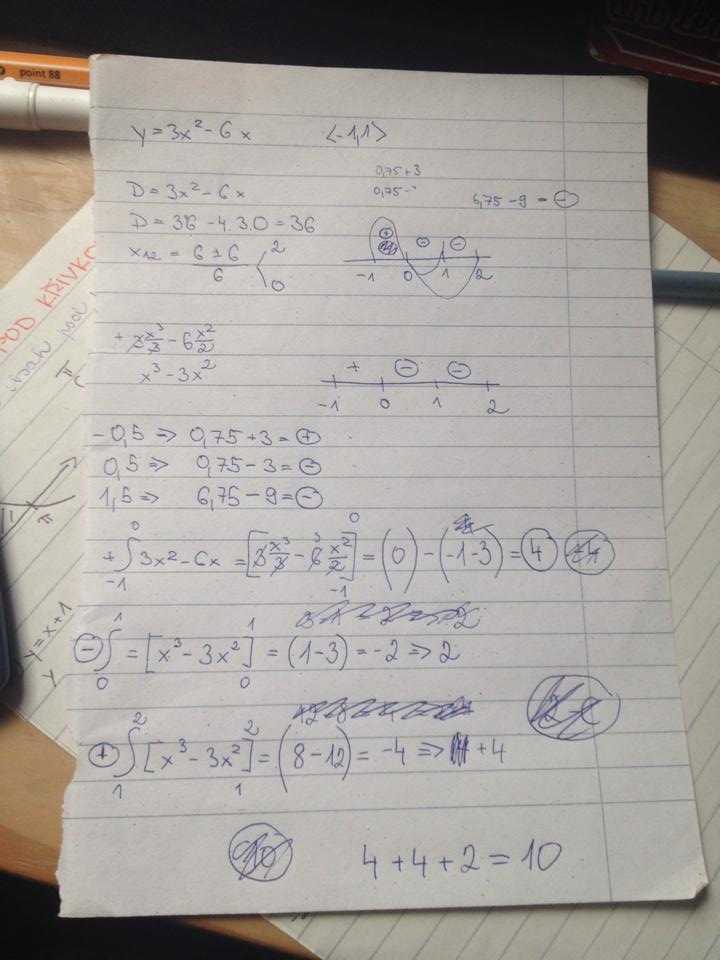 point 88
y = 3x² - 6x <-1,1>
0,75+3
0,75-
6,75 - 9 = ⊖
D = 3x² - 6x
D = 36 - 4.3.0 = 36
x₁₂ = (6 ± 6)/6 < 2
0
⊕ ⊖ ⊖
-1 0 1 2
+ 3 x³/3 - 6 x²/2
x³ - 3x²
+ ⊖ ⊖
-1 0 1 2
-0,5 ⇒ 0,75 + 3 = ⊕
0,5 ⇒ 0,75 - 3 = ⊖
1,5 ⇒ 6,75 - 9 = ⊖
+ ∫₋₁⁰ 3x² - 6x = [3 x³/3 - 6 x²/2]₋₁⁰ = (0) - (-1-3) = 4
⊖ ∫₀¹ = [x³ - 3x²]₀¹ = (1-3) = -2 ⇒ 2
⊕ ∫₁² [x³ - 3x²]₁² = (8-12) = -4 ⇒ +4
4 + 4 + 2 = 10
POD KŘIVKO
pod
π
π
y = x+1
y